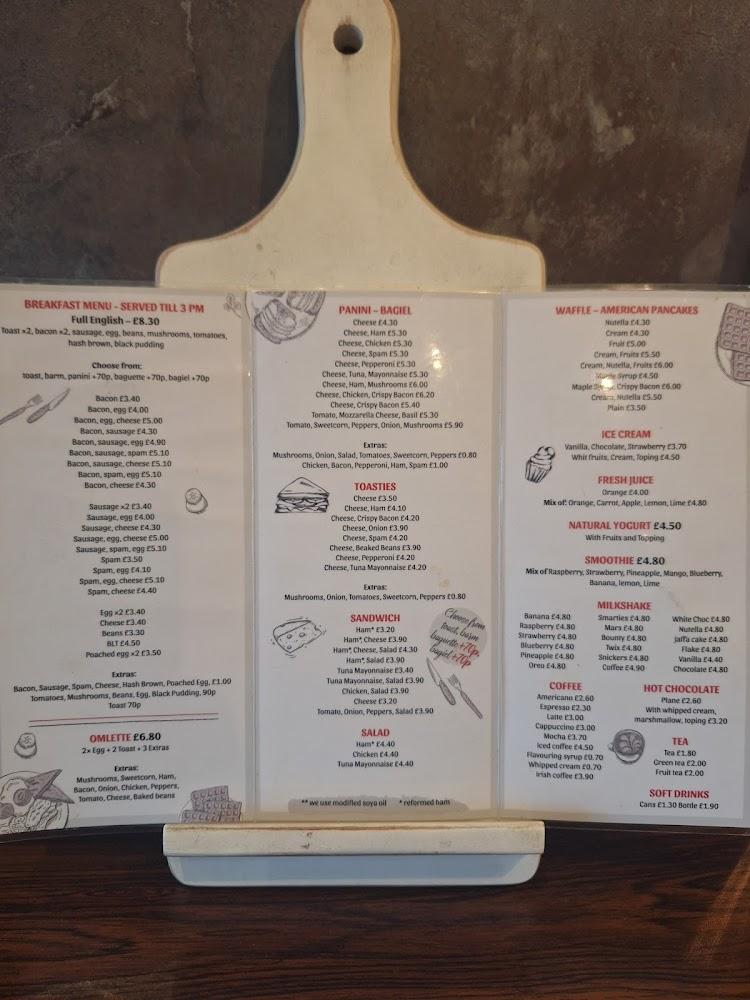 BREAKFAST MENU - SERVED TILL 3 PM
Full English - £8.30
Toast ×2, bacon ×2, sausage, egg, beans, mushrooms, tomatoes,
hash brown, black pudding
Choose from:
toast, barm, panini +70p, baguette +70p, bagiel +70p
Bacon £3.40
Bacon, egg £4.00
Bacon, egg, cheese £5.00
Bacon, sausage £4.30
Bacon, sausage, egg £4.90
Bacon, sausage, spam £5.10
Bacon, sausage, cheese £5.10
Bacon, spam, egg £5.10
Bacon, cheese £4.30
Sausage ×2 £3.40
Sausage, egg £4.00
Sausage, cheese £4.30
Sausage, egg, cheese £5.00
Sausage, spam, egg £5.10
Spam £3.50
Spam, egg £4.10
Spam, egg, cheese £5.10
Spam, cheese £4.40
Egg ×2 £3.40
Cheese £3.40
Beans £3.30
BLT £4.50
Poached egg ×2 £3.50
Extras:
Bacon, Sausage, Spam, Cheese, Hash Brown, Poached Egg, £1.00
Tomatoes, Mushrooms, Beans, Egg, Black Pudding, 90p
Toast 70p
OMLETTE £6.80
2x Egg + 2 Toast + 3 Extras
Extras:
Mushrooms, Sweetcorn, Ham,
Bacon, Onion, Chicken, Peppers,
Tomato, Cheese, Baked beans
PANINI - BAGIEL
Cheese £4.30
Cheese, Ham £5.30
Cheese, Chicken £5.30
Cheese, Spam £5.30
Cheese, Pepperoni £5.30
Cheese, Tuna, Mayonnaise £5.30
Cheese, Ham, Mushrooms £6.00
Cheese, Chicken, Crispy Bacon £6.20
Cheese, Crispy Bacon £5.40
Tomato, Mozzarella Cheese, Basil £5.30
Tomato, Sweetcorn, Peppers, Onion, Mushrooms £5.90
Extras:
Mushrooms, Onion, Salad, Tomatoes, Sweetcorn, Peppers £0.80
Chicken, Bacon, Pepperoni, Ham, Spam £1.00
TOASTIES
Cheese £3.50
Cheese, Ham £4.10
Cheese, Crispy Bacon £4.20
Cheese, Onion £3.90
Cheese, Spam £4.20
Cheese, Beaked Beans £3.90
Cheese, Pepperoni £4.20
Cheese, Tuna Mayonnaise £4.20
Extras:
Mushrooms, Onion, Tomatoes, Sweetcorn, Peppers £0.80
SANDWICH
Ham* £3.20
Ham*, Cheese £3.90
Ham*, Cheese, Salad £4.30
Ham*, Salad £3.90
Tuna Mayonnaise £3.40
Tuna Mayonnaise, Salad £3.90
Chicken, Salad £3.90
Cheese £3.20
Tomato, Onion, Peppers, Salad £3.90
Choose from
toast, barm
baguette +70p,
bagiel +70p
SALAD
Ham* £4.40
Chicken £4.40
Tuna Mayonnaise £4.40
** we use modified soya oil * reformed ham
WAFFLE - AMERICAN PANCAKES
Nutella £4.30
Cream £4.30
Fruit £5.00
Cream, Fruits £5.50
Cream, Nutella, Fruits £6.00
Maple Syrup £4.50
Maple Syrup, Crispy Bacon £6.00
Cream, Nutella £5.50
Plain £3.50
ICE CREAM
Vanilla, Chocolate, Strawberry £3.70
Whit fruits, Cream, Toping £4.50
FRESH JUICE
Orange £4.00
Mix of: Orange, Carrot, Apple, Lemon, Lime £4.80
NATURAL YOGURT £4.50
With Fruits and Topping
SMOOTHIE £4.80
Mix of Raspberry, Strawberry, Pineapple, Mango, Blueberry,
Banana, lemon, Lime
MILKSHAKE
Banana £4.80
Raspberry £4.80
Strawberry £4.80
Blueberry £4.80
Pineapple £4.80
Oreo £4.80
Smarties £4.80
Mars £4.80
Bounty £4.80
Twix £4.80
Snickers £4.80
Coffee £4.90
White Choc £4.80
Nutella £4.80
Jaffa cake £4.80
Flake £4.80
Vanilla £4.40
Chocolate £4.80
COFFEE
Americano £2.60
Espresso £2.30
Latte £3.00
Cappuccino £3.00
Mocha £3.70
Iced coffee £4.50
Flavouring syrup £0.70
Whipped cream £0.70
Irish coffee £3.90
HOT CHOCOLATE
Plane £2.60
With whipped cream,
marshmallow, toping £3.20
TEA
Tea £1.80
Green tea £2.00
Fruit tea £2.00
SOFT DRINKS
Cans £1.30 Botle £1.90